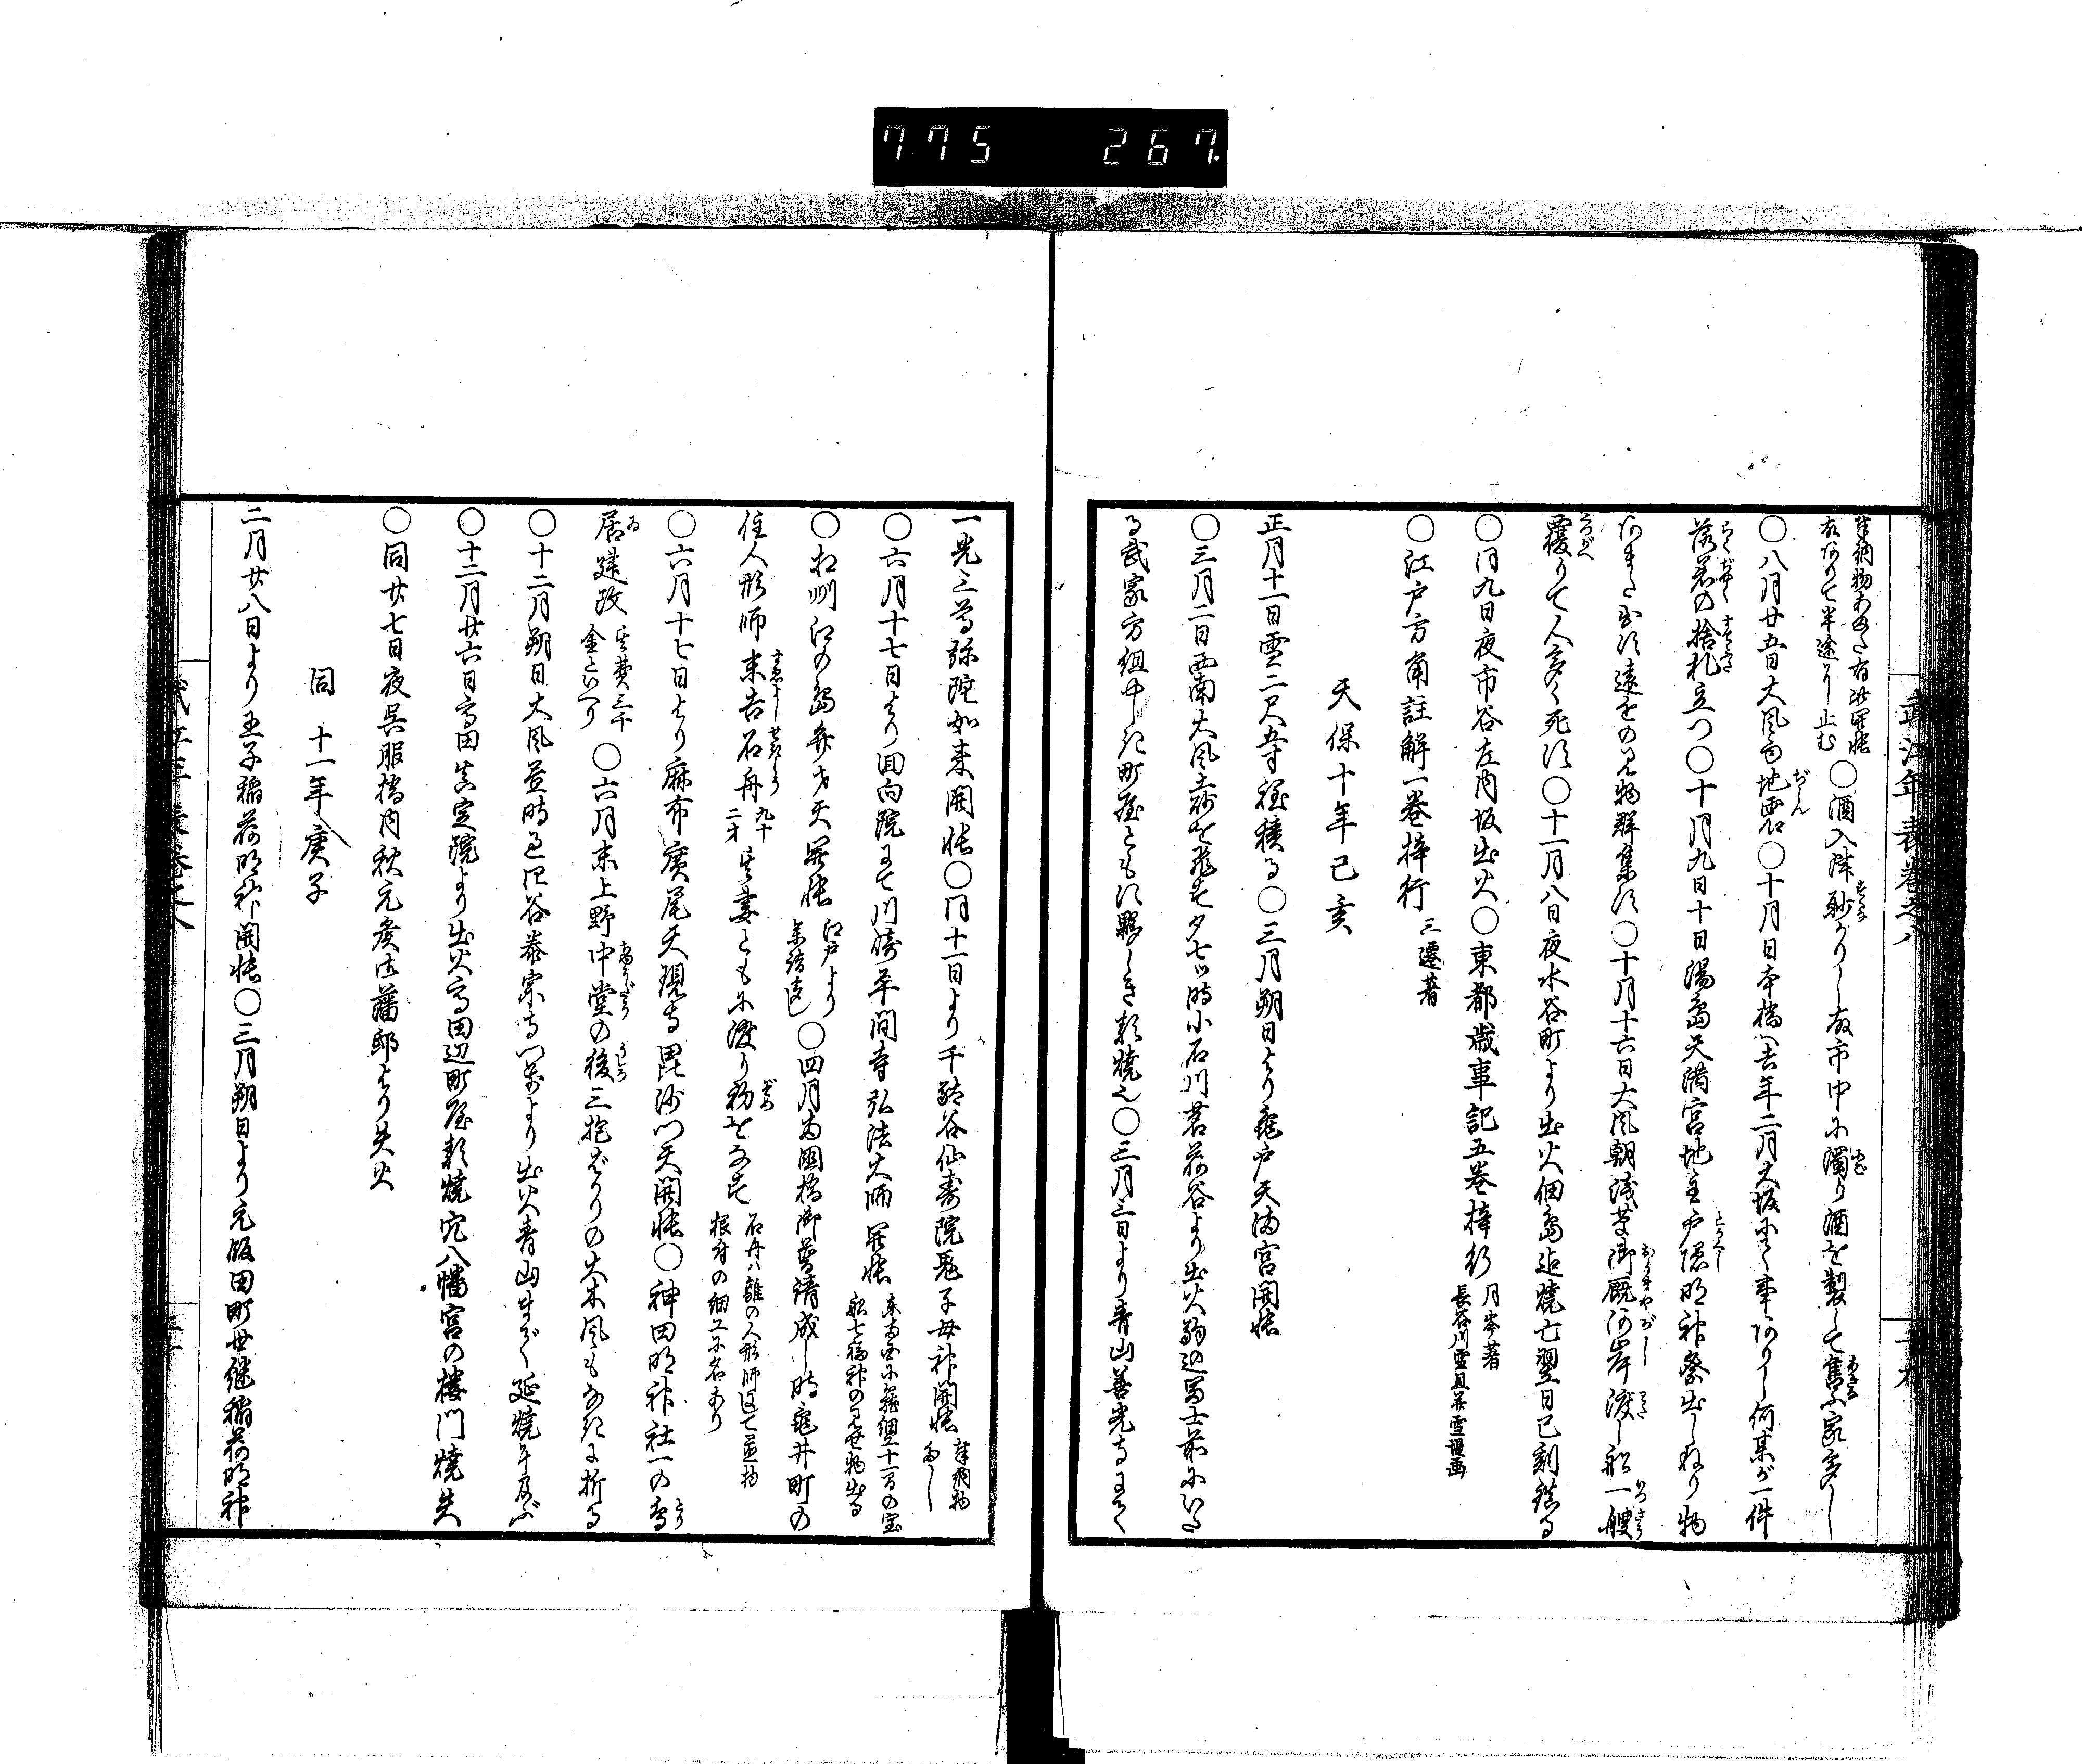 775 267.
武江年表巻之八
奉納物あまた有此開帳
故ありて半途ゟ止む
○酒入津尠かりし故市中に濁り酒を製して售ふ家多し
○八月廿五日大風雨地震○十月日本橋へ去年二月大坂にて事ありし何某が一件
落著の捨札立つ○十月九日十日湯島天満宮地主戸隠明神祭出しねり物
あまた出す遠近の見物群集す○十月十六日大風朝浅草御厩河岸渡し船一艘
覆りて人多く死す○十一月八日夜水谷町より出火佃島迄焼亡翌日巳刻鎮る
○同九日夜市谷左内坂出火○東都歳事記五巻梓行
月岑著
長谷川雪旦並雪堤画
○江戸方角註解一巻梓行 三遷著
天保十年己亥
正月十一日雪二尺五寸程積る○三月朔日より亀戸天満宮開帳
○三月二日西南大風土砂を飛す夕七ツ時小石川茗荷谷より出火駒込富士前にいたる
武家方組中し町屋とも夥しき類焼也○三月三日より青山善光寺にて
一光三尊弥陀如来開帳○同十一日より千駄谷仙寿院鬼子母神開帳 奉納物多し
○六月十七日より回向院にて川崎平間寺弘法大師開帳
東両国に籠細工十一間の宝
船七福神の見世物出る
○相州江の島弁才天開帳
江戸より
参詣多し
○四月両国橋御普請成し時亀井町の
住人形師末吉石舟
九十
二才
其妻ともに渡り初をなす
石舟ハ雛の人形師にて並物
根付の細工に名あり
○六月十七日より麻布広尾天現寺毘沙門天開帳○神田明神社一の鳥
居建改
其費三千
金といへり
○六月末上野中堂の後三抱ばかりの大木風もなきに折る
○十二月朔日大風昼時過四谷泰宗寺門前より出火青山まで延焼に及ぶ
○十二月廿六日高田真定院より出火高田辺町屋類焼穴八幡宮の楼門焼失
○同廿七日夜呉服橋内秋元侯御藩邸より失火
同十一年庚子
二月廿八日より王子稲荷明神開帳○三月朔日より元飯田町世継稲荷明神